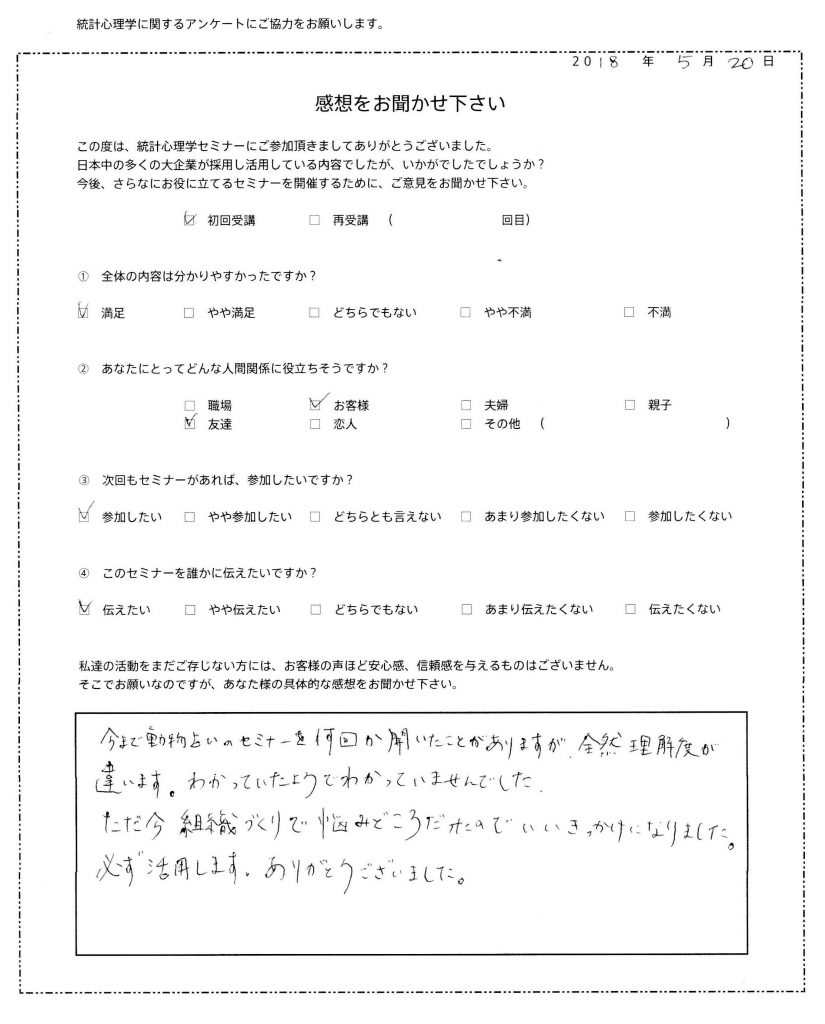 統計心理学に関するアンケートにご協力をお願いします。
2018 年 5 月 20 日
感想をお聞かせ下さい
この度は、統計心理学セミナーにご参加頂きましてありがとうございました。
日本中の多くの大企業が採用し活用している内容でしたが、いかがでしたでしょうか？
今後、さらなにお役に立てるセミナーを開催するために、ご意見をお聞かせ下さい。
☑ 初回受講 □ 再受講 （ 回目）
① 全体の内容は分かりやすかったですか？
☑ 満足 □ やや満足 □ どちらでもない □ やや不満 □ 不満
② あなたにとってどんな人間関係に役立ちそうですか？
□ 職場 ☑ お客様 □ 夫婦 □ 親子
☑ 友達 □ 恋人 □ その他 （ ）
③ 次回もセミナーがあれば、参加したいですか？
☑ 参加したい □ やや参加したい □ どちらとも言えない □ あまり参加したくない □ 参加したくない
④ このセミナーを誰かに伝えたいですか？
☑ 伝えたい □ やや伝えたい □ どちらでもない □ あまり伝えたくない □ 伝えたくない
私達の活動をまだご存じない方には、お客様の声ほど安心感、信頼感を与えるものはございません。
そこでお願いなのですが、あなた様の具体的な感想をお聞かせ下さい。
今まで動物占いのセミナーを何回か聞いたことがありますが、全然理解度が
違います。わかっていたようでわかっていませんでした。
ただ今組織づくりで悩みどころだったのでいいきっかけになりました。
必ず活用します。ありがとうございました。